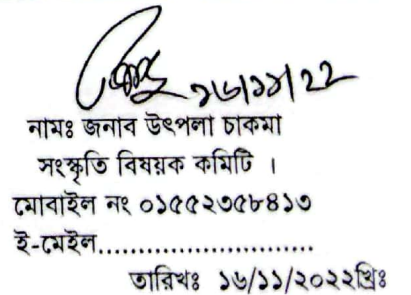 ১৬/১১/২২
নামঃ জনাব উৎপলা চাকমা
সংস্কৃতি বিষয়ক কমিটি ।
মোবাইল নং ০১৫৫২৩৫৮৪১৩
ই-মেইল............................
তারিখঃ ১৬/১১/২০২২খ্রিঃ